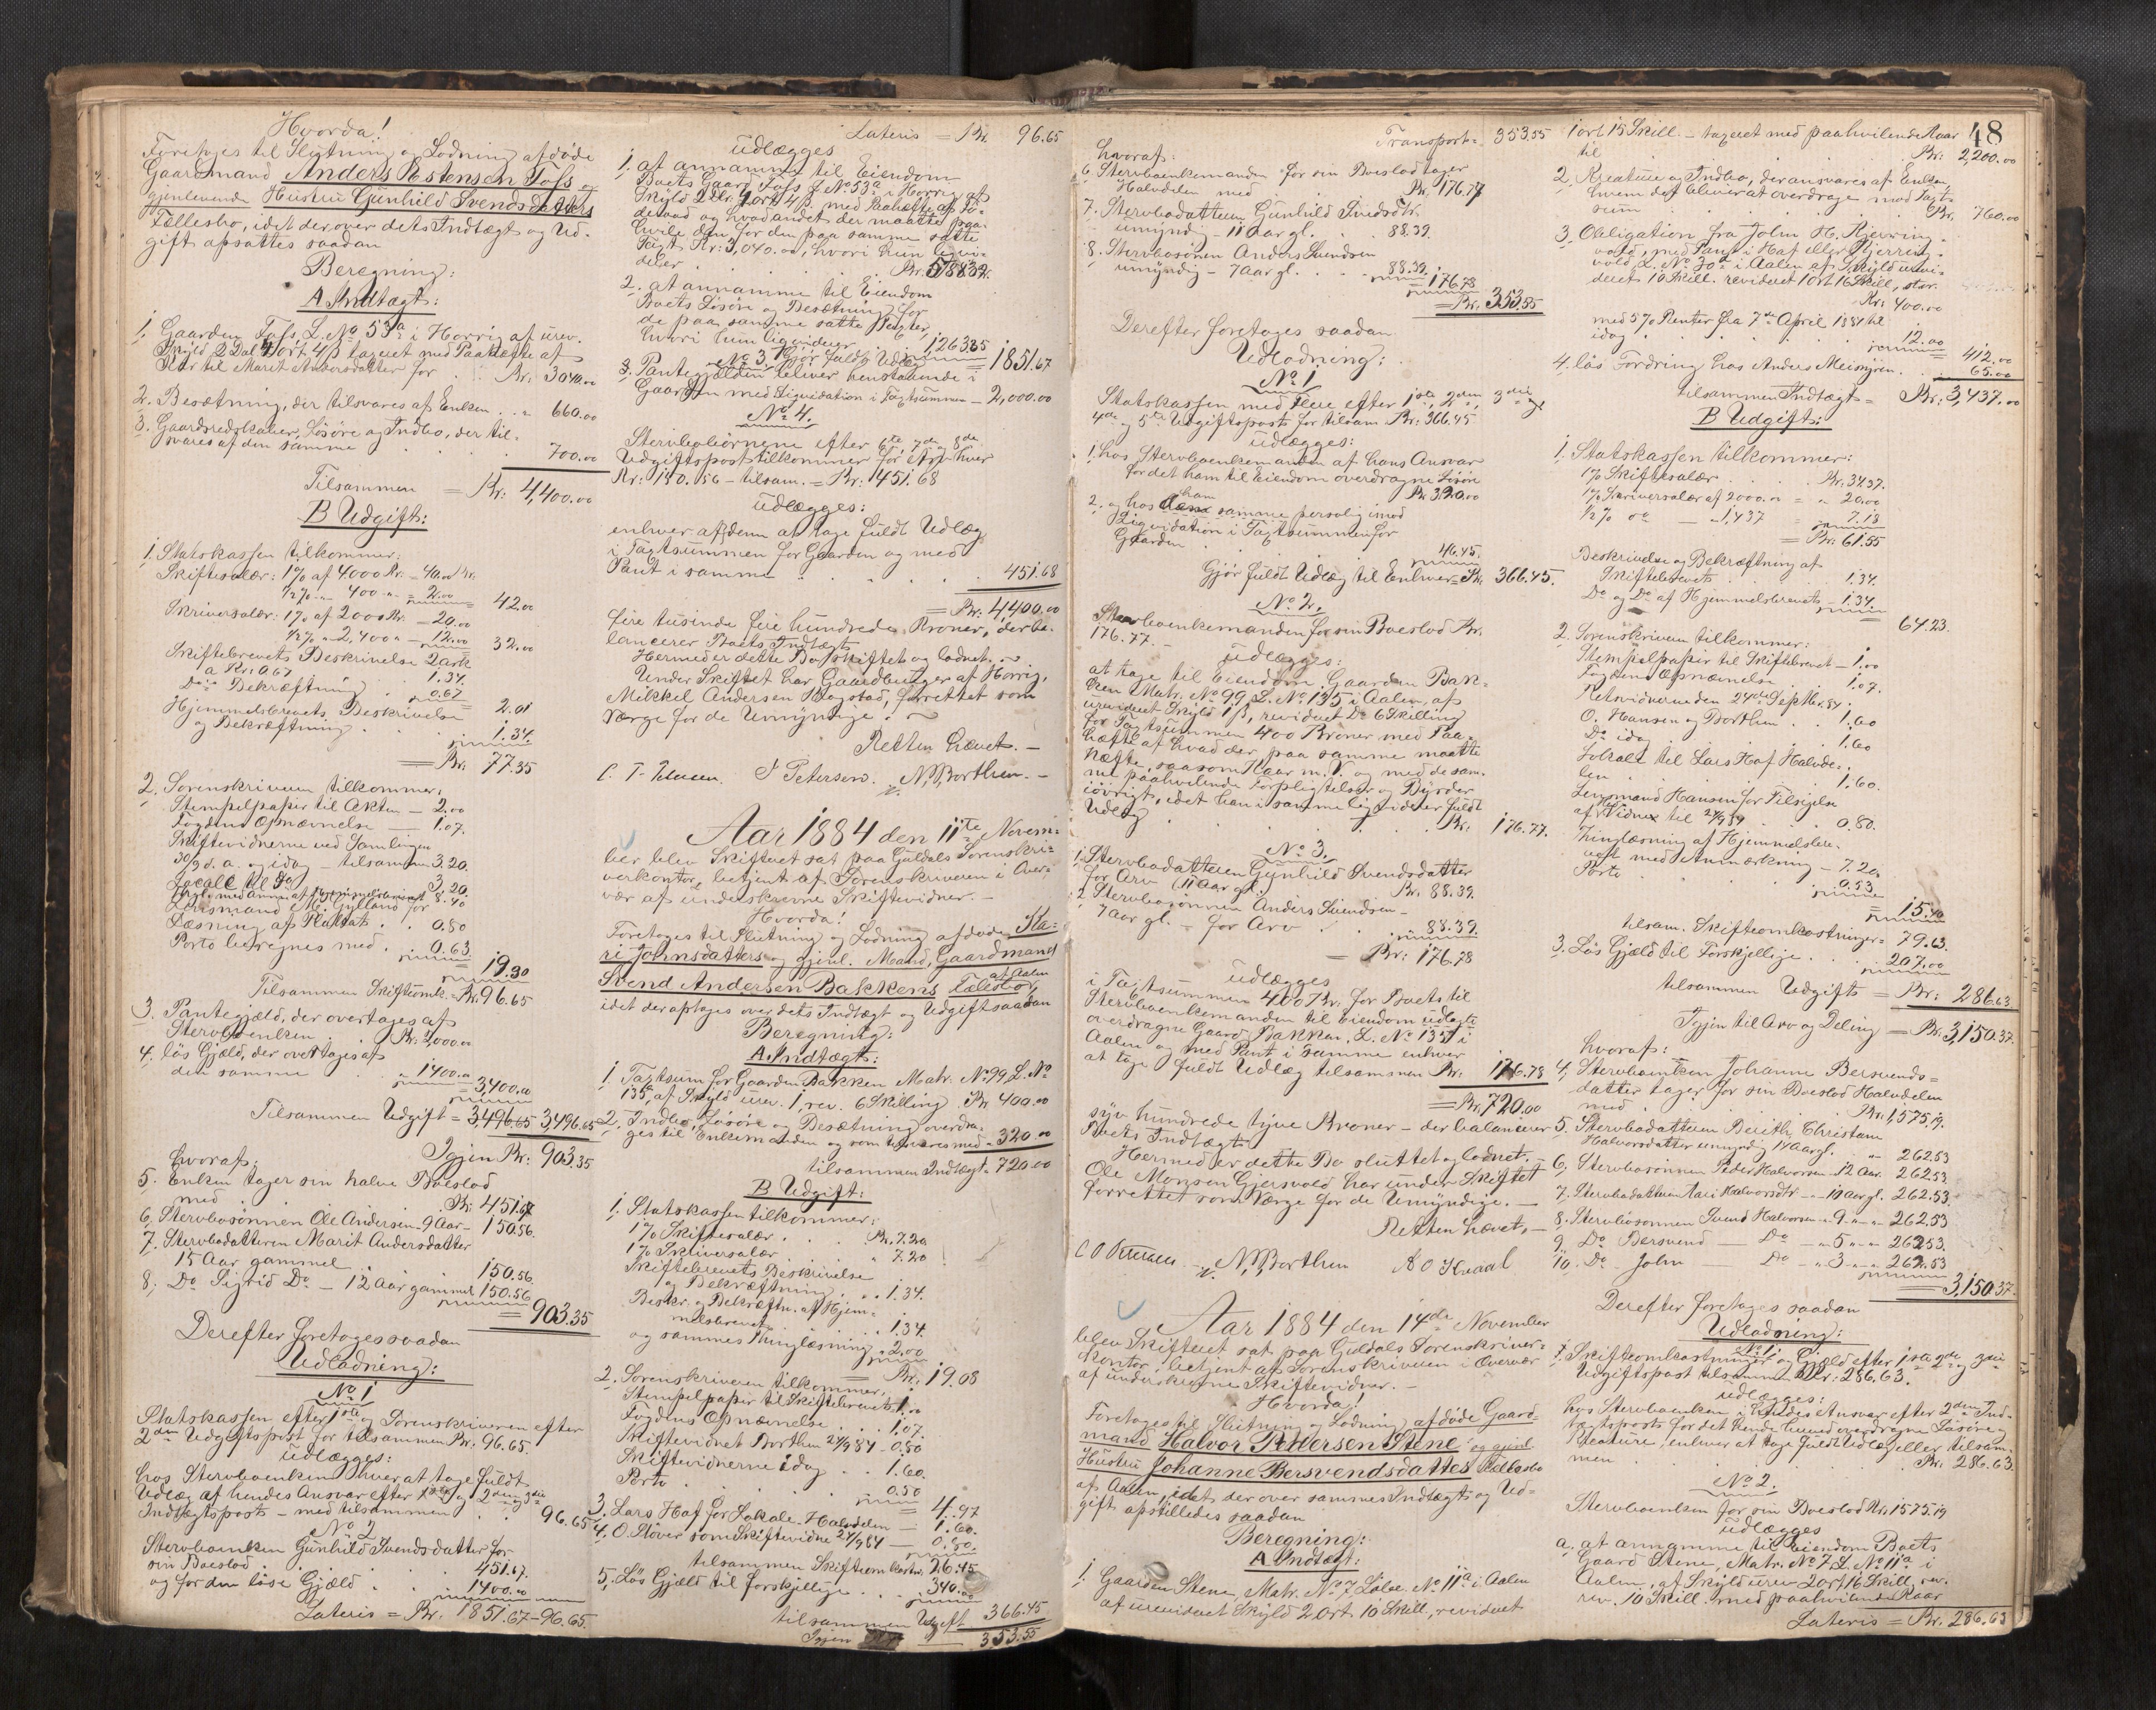 Hvorda!
Foretages til Slutning og Lodning afdøde
Gaardmand Anders Estensen Foss og
gjenlevende Hustru Gunhild Svendsdatters
Fællesbo, idet der over dets Indtægt og Ud-
gift opsattes saadan
Beregning:
A Indtægt:
1, Gaarden Foss L. No 53a i Horrig af urev.
Skyld 2 Dal. 4 ort 4 β taxeret med Paahefte af
Kaar til Marit Andersdatter for . Kr. 3040.00
2. Besætning, der tilsvares af Enken . . „ 660.00
3. Gaardsredskaber, Løsøre og Indbo, der til-
svares af den samme . . . 700.00
Tilsammen = Kr: 4,400.00
B Udgift:
1. Statskassen tilkommer:
Skiftesalær: 1% af 4000 Kr. = 40.00 Kr.
1/2% „ 400 „ = 2.00
= 42.00
Skriversalær: 1% af 2000 Kr. = 20.00
1/2% „ 2,400 „ = 12.00
32.00
Skiftebrevets Beskrivelse 2 ark
a Kr: 0.67 1.34.
Do's Bekræftning . 0.67
2.01
Hjemmelsbrevets Beskrivelse
og Bekræftning . . . 1.34.
= Kr: 77.35
2. Sorenskriveren tilkommer:
Stempelpapir til Akten — 2.00
Fogdens Opnævnelse — 1.07.
Skiftevidnerne ved Samlingen
30/9 d. a. og idag — tilsammen 3.20.
Locale til Do 3.20
8.40
Lensmand M. Gylland for
Læsning af Plakat . . 0.80
Porto beregnes med . 0.63
= 19.30
Tilsammen Skifteomk. = Kr. 96.65
3. Pantegjæld, der overtages af
Stervboenken . Kr: 2,000.00
4. løs Gjæld, der overtages af
den samme . . „ 1400.00
= 3,400.00
Tilsammen Udgift = 3,496.65 3,496.65
Igjen Kr: 903.35
hvoraf:
5. Enken tager sin halve Boeslod
med . . . Kr: 451.67
6. Stervbosønnen Ole Andersen - 9 Aar - 150.56.
7. Stervbodatteren Marit Andersdatter
15 Aar gammel . . . 150.56.
8. Do Sigrid Do — 12 Aar gammel 150.56
= 903.35
Derefter foretages saadan
Udlodning:
No 1
Statskassen efter 1ste og Sorenskriveren efter
2den Udgiftspost for tilsammen Kr: 96.65.
udlægges:
hos Stervboenken hver at tage fuldt
Udlæg af hendes Ansvar efter 2den og 3die
Indtægtspost – med tilsammen . . 96.65
No 2
Stervboenken Gunhild Svendsdatter for
sin Boeslod . . . 451.67.
og for den løse Gjæld . . 1400.00
Lateris = Kr. 1851.67 – 96.65.
Lateris = Kr. 96.65
udlægges
1. at annamme til Eiendom
Boets Gaard Foss L No 53a i Horrig af
Skyld 2 Dlr. 4 ort 4 β med Paahefte af Fø-
deraad og hvad andet der maatte paa-
hvile den for den paa samme satte
Taxt Kr: 3,040.00, hvori hun liqvi-
derer . . . Kr. 588.32.
2. at annamme til Eiendom
Boets Løsøre og Besætning for
de paa samme satte Taxter,
hvori hun liqviderer . 1263.35
Gjør fuldt Udlæg = 1851.67
No 3.
3. Pantegjælden bliver henstaaende i
Gaarden med Liqvidation i Taxtsummen — 2,000.00
No 4.
Stervbobørnene efter 6te, 7de og 8de
Udgiftspost tilkommer for Arv hver
Kr: 150.56 – tilsam. = Kr: 451.68
udlægges:
enhver af dem at tage fuldt Udlæg
i Taxtsummen for Gaarden og med
Pant i samme . . . . . 451.68
= Kr: 4,400.00
fire tusinde fire hundrede Kroner, der ba-
lancerer Boets Indtægt
Hermed er dette Bo skiftet og lodnet. –
Under Skiftet har Gaardbruger af Horrig,
Mikkel Andersen Hogstad, forrettet som
Værge for de Umyndige. –
Retten hævet. –
C. T. Petersen. J Petersen. N. Borthen. –
Aar 1884 den 11te Novem-
ber blev Skifteret sat paa Guldals Sorenskri-
verkontor, betjent af Sorenskriveren i Over-
vær af underskrevne Skiftevidner. –
Hvorda!
Foretages til Slutning og Lodning afdøde Ka-
ri Johnsdatters og gjenl. Mand, Gaardmand
Svend Andersen Bakkens af Aalen Fællesbo,
idet der optages over dets Indtægt og Udgift saadan
Beregning:
A. Indtægt:
1. Taxtsum for Gaarden Bakken Matr. No 99 L. No
135a, af Skyld urev. 1, rev. 6 Skilling Kr 400.00
2. Indbo, Løsøre og Besætning overdra-
ges til Enkemanden og som tilsvares med „ 320.00
tilsammen Indtægt = 720.00
B Udgift:
1. Statskassen tilkommer:
1% Skiftesalær . . . Kr. 7.20
1% Skriversalær . . „ 7.20
Skiftebrevets Beskrivelse
og Bekræftning . . 1.34.
Beskr. og Bekræftn. af Hjem-
melsbrevet . . . „ 1.34.
og sammes Thinglæsning „ 2.00
= Kr. 19.08
2. Sorenskriveren tilkommer:
Stempelpapir til Skiftebrevet 1.00
Fogdens Opnævnelse . . 1.07.
Skiftevidnet Borthen 24/9 84 . 0.80
Skiftevidnerne idag . . 1.60.
Porto . . . 0.50
= 4.97
3. Lars Hof for Lokale. Halvdelen — 1.60.
4. O. Støver som Skiftevidne 24/9 84 — 0.80.
tilsammen Skifteomkostn. 26.45
5. Løs Gjæld til forskjellige . . 340.00
tilsammen Udgift 366.45
Igjen 353.55
Transport = 353.55
hvoraf:
6. Stervboenkemanden for sin Boeslod tager
Halvdelen med . . . Kr. 176.77
7. Stervbodatteren Gunhild Svendsdtr.
umyndig – 11 Aar gl. . . 88.39.
8. Stervbosønnen Anders Svendsen
umyndig – 7 Aar gl. . . 88.39.
= 176.78
= Kr. 353.55
Derefter foretages saadan
Udlodning:
No 1
Statskassen med Flere efter 1ste, 2den, 3die
4de og 5te Udgiftsposts for tilsam Kr: 366.45
udlægges:
1. hos Stervboenkemanden af hans Ansvar
for det ham til Eiendom overdragne Løsøre
Kr. 320.00
2. og hos ham samme personlig imod
Liqvidation i Taxtsummen for
Gaarden . . . 46.45.
Gjør fuldt Udlæg til Enhver = Kr. 366.45.
No 2.
Stervboenkemanden for sin Boeslod Kr.
176.77. –
udlægges:
at tage til Eiendom Gaarden Bak-
ken Matr. No 99 L. No 135 i Aalen, af
urevideret Skyld 1 β, revideret Do 6 Skilling
for Taxtsummen 400 Kroner med Paa-
hefte af hvad der paa samme maatte
hefte, saasom Kaar m. V. og med de sam-
me paahvilende Forpligtelser og Byrder
iøvrigt, idet han i samme liqviderer fuldt
Udlæg . . . . . Kr: 176.77.
No 3.
1. Stervbodatteren Gunhild Svendsdatter
for Arv (11 Aar gl.) Kr. 88.39.
2. Stervbosønnen Anders Svendsen –
7 Aar gl. – for Arv . . 88.39.
= Kr: 176.78
udlægges
i Taxtsummen 400 Kr. for Boets til
Stervboenkemanden til Eiendom udlagte
overdragne Gaard Bakken, L. No 135 i
Aalen og med Pant i samme enhver
at tage fuldt Udlæg tilsammen Kr. 176.78
= Kr 720.00
syv hundrede tyve Kroner – der balancerer
Boets Indtægt
Hermed er dette Bo sluttet og lodnet. –
Ole Monsen Gjersvold har under Skiftet
forrettet som Værge for de Umyndige. –
Retten hævet, –
N. Borthen A O Kvaal
Aar 1884 den 14de November
blev Skifteret sat paa Guldals Sorenskriver-
kontor, betjent af Sorenskriveren i Overvær
af underskrevne Skiftevidner. –
Hvorda!
Foretages til Slutning og Lodning afdøde Gaard-
mand Halvor Pettersen Stene og gjenl.
Hustru Johanne Bersvendsdatters Fællesbo
af Aalen, idet der over sammes Indtægt og Ud-
gift opstilledes saadan
Beregning:
A Indtægt:
1. Gaarden Stene, Matr. No 7 Løbe No 11a i Aalen
af urevideret Skyld 2 Ort 10 Skill, revideret
48
1 ort 15 Skill. – taxeret med paahvilende Kaar
til . . . . Kr: 2,200.00
2. Kreature og Indbo, der ansvares af Enken,
hvem det bliver at overdrage mod Taxt-
sum . . . . Kr. 760.00
3. Obligation fra John H. Kjerring-
vold, med Pant i Hof eller Kjerring-
vold L. No 30a i Aalen af Skyld urevi-
deret 10 Skill. revideret 1 ort 16 Skill, stor
Kr: 400.00
med 5% Renter fra 7de April 1884 til
idag . . . . 12.00
= 412.00
4. løs Fordring hos Anders Meismyren. . . 65.00
tilsammen Indtægt = Kr: 3,437.00
B Udgift:
1. Statskassen tilkommer:
1% Skiftesalær . . . Kr. 34.37.
1% Skriversalær af 2000.00 = „ 20.00
1/2% do — „ 1,437 = 7.18
= Kr: 61.55
Beskrivelse og Bekræftning af
Skiftebrevet . . . 1.34.
Do og Do af Hjemmelsbrevet — 1.34.
64.23.
2. Sorenskriveren tilkommer:
Stempelpapir til Skiftebrevet — 1.00
Fogdens Opnævnelse . . 1.07.
Retsvidnerne den 24de Septbr. 84 .
O. Hansen og Borthen . . 1.60
Do idag . . . 1.60
Lokale til Lars Hof Halvde-
len . . . 1.60.
Lensmand Hansen for Tilsigelse
af Vidner til 24/9 84 . . 0.80.
Thinglæsning af Hjemmelsbre-
vet med Anmærkning — 7.20
Porto . . . 0.53
= 15.40
tilsam. Skifteomkostninger = 79.63.
3. Løs Gjæld til Forskjellige . . . 207.00
tilsammen Udgift = Kr: 286.63
Igjen til Arv og Deling = Kr. 3,150.37.
hvoraf:
4. Stervboenken Johanne Bersvends-
datter tager for sin Boeslod Halvdelen
med . . . Kr. 1,575.19.
5. Stervbodatteren Berith Christane
Halvorsdatter umyndig 14 aar gl. „ 262.53
6. Stervbosønnen Peder Halvorsen - 12 Aar. 262.53.
7. Stervbodatteren Kari Halvorsdtr - „ 10 aar gl. 262.53.
8. Stervbosønnen Svend Halvorsen - „ 9 „ „ 262.53
9. Do Bersvend — Do — „ 5 „ „ 262.53.
10. Do John — Do — „ 3 „ „ 262.53
= 3,150.37.
Derefter foretages saadan
Udlodning:
No 1.
1. Skifteomkostninger og Gjæld efter 1ste 2de og 3die
Udgiftspost tilsammen Kr: 286.63.
udlægges:
hos Stervboenken i hendes Ansvar efter 2den Ind-
tægtsposts for det hende herved overdragne Løsøre og
Kreature, enhver at tage fuldt Udlæg eller tilsam-
men . . . . Kr. 286.63.
No 2.
Stervboenken for sin Boeslod Kr. 1575.19
udlægges
a. at annamme til Eiendom Boets
Gaard Stene, Matr. No 7 L. No 11a i
Aalen, af Skyld urev. 2 ort 16 Skill, rev.
rev. 10 Skill. med paahvilende Kaar
Lateris = Kr. 286.63